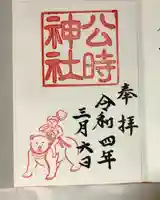 奉拝
公時
神社
令和四年
三月六日